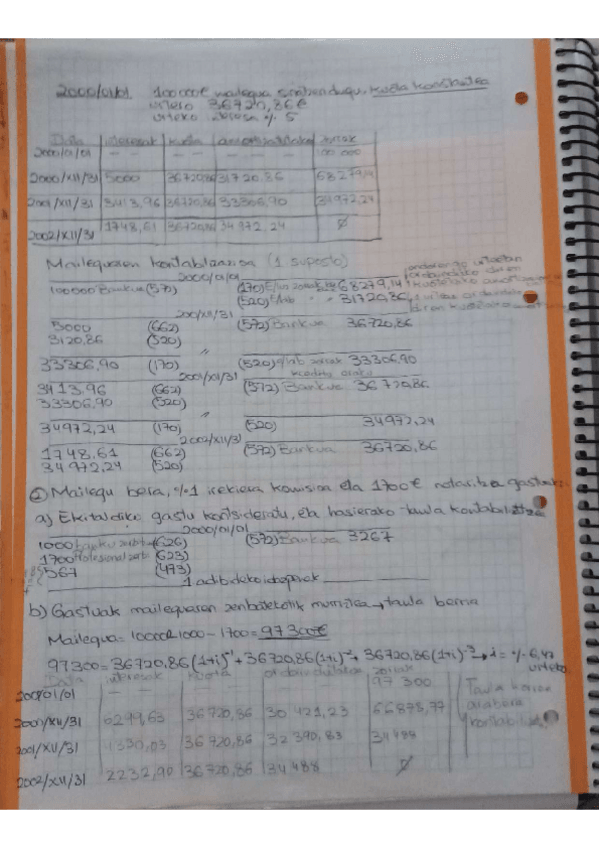 2000/01/01 100000€ mailegua sinatzen dugu. kuota konstantea
urtero 36720,86€
urteko interesa % 5
Data interesak kuota amortizatutakoa zorrak
2000/01/01 — — — — — — 100 000
2000/XII/31 5000 36720,86 31720,86 68279,14
2001/XII/31 3413,96 36720,86 33306,90 34972,24
2002/XII/31 1748,61 36720,86 34972,24 ∅
Maileguaren kontabilizazioa (1. suposto)
2000/01/01
100000 Bankua (572) (170) E/luz zorrak 68279,14
(520) 31720,86
2000/XII/31
5000 (662) (572) Bankua 36720,86
3120,86 (520)
"
33306,90 (170) (520) 33306,90
2001/XII/31
3413,96 (662) (572) Bankua 36720,86
33306,90 (520)
"
34972,24 (170) (520) 34972,24
2002/XII/31
1748,61 (662) (572) Bankua 36720,86
34972,24 (520)
② Mailegu bera, %1 irekiera komisioa eta 1700€ notaritza gastuak.
a) Ekitaldiko gastu kontsideratu, eta hasierako taula kontabilitzea
2000/01/01
1000 (626) (572) Bankua 3267
1700 Profesional zerb (623)
567 (473)
1 adibideko idazpenak
b) Gastuak maileguaren zenbatekotik murriztea → taula berria
Mailegua = 100000 - 1000 - 1700 = 97300€
97300 = 36720,86 (1+i)⁻¹ + 36720,86 (1+i)⁻² + 36720,86 (1+i)⁻³ → i = % 6,47 urteko
Data interesak kuota ordaindutakoa zorrak
2000/01/01 — — 97 300
2000/XII/31 6299,63 36720,86 30 421,23 66878,77
2001/XII/31 4330,03 36720,86 32 390,83 34 488
2002/XII/31 2232,90 36720,86 34 488 ∅
Taula horren
arabera
kontabilizatu